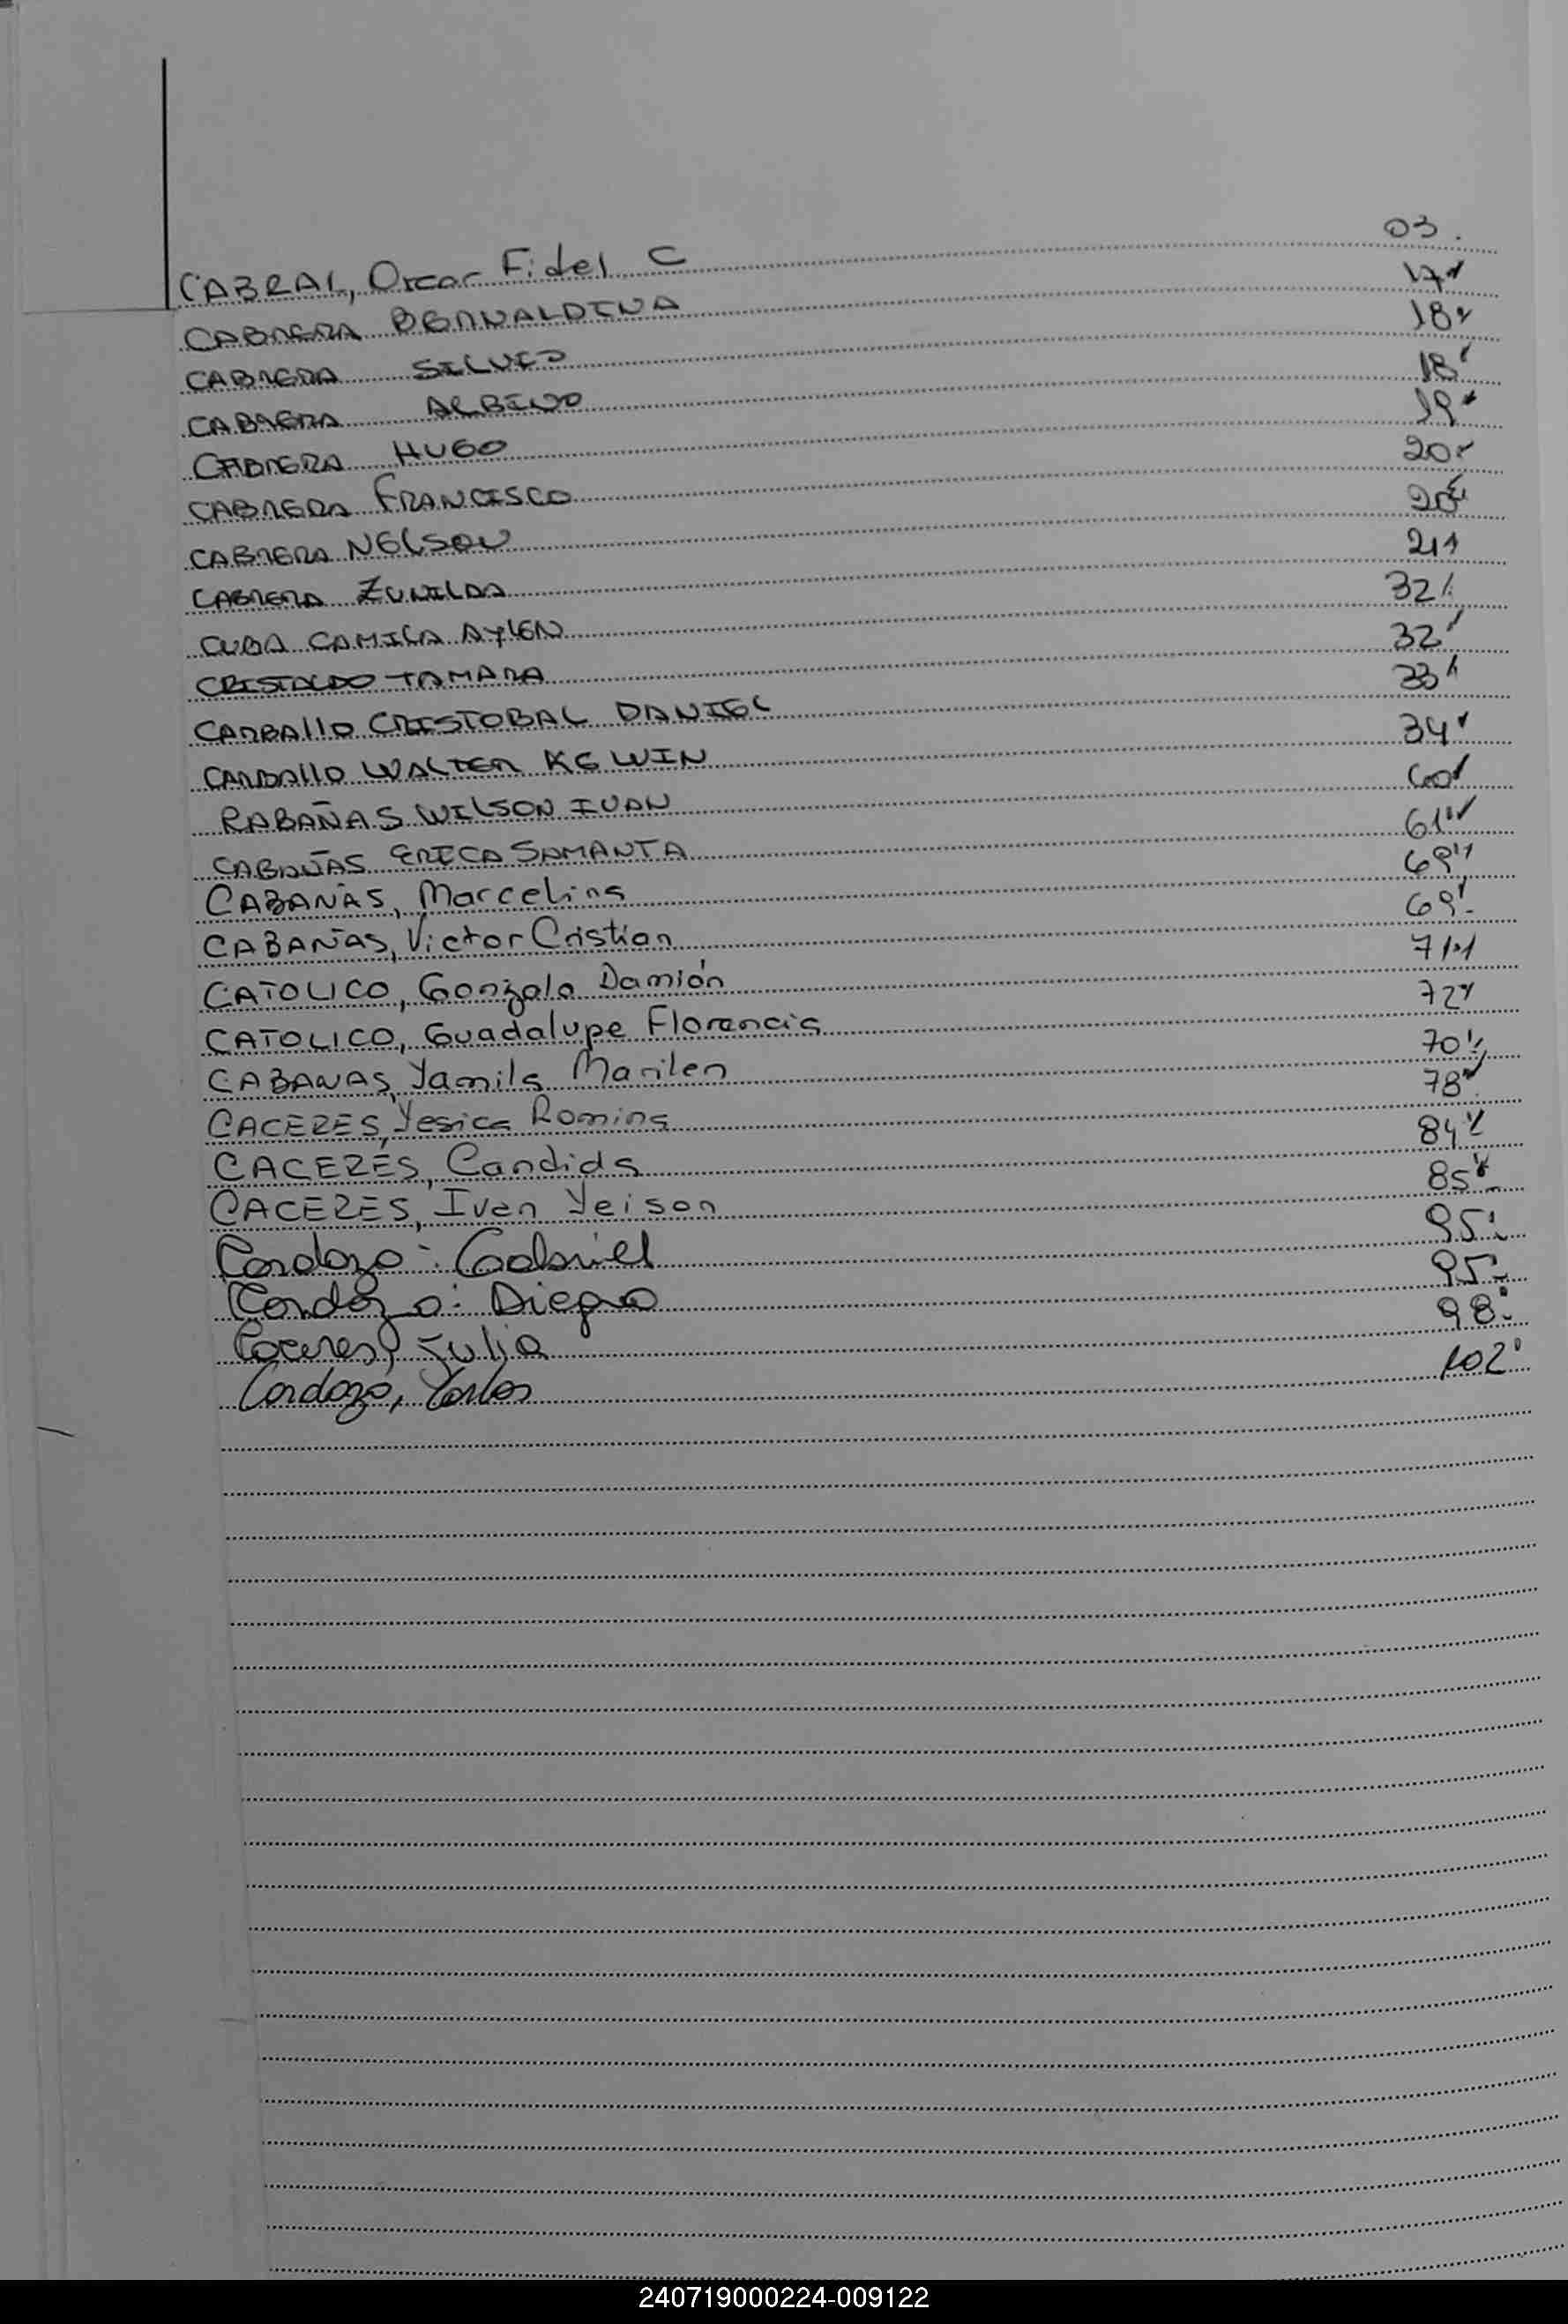 CABRAL, Oscar Fidel C 03.
CABRERA BERNALDINA 17
CABRERA SILVIO 18
CABRERA ALBINO 18
CABRERA HUGO 19
CABRERA FRANCISCO 20
CABRERA NELSON 20
CABRERA ZUNILDA 21
CUBA CAMILA AYLEN 32
CRISTALDO TAMARA 32
CARBALLO CRISTOBAL DANIEL 33
CARBALLO WALTER KEWIN 34
RABAÑAS WILSON IVAN 60
CABAÑAS ERICA SAMANTA 61
CABAÑAS, Marcelina 69
CABAÑAS, Victor Cristian 69
CATOLICO, Gonzalo Damián 71
CATOLICO, Guadalupe Florencia 72
CABANAS, Yamila Marilen 70
CACERES, Yesica Romina 78
CACERES, Candida 84
CACERES, Ivan Yeison 85
Cardozo: Gabriel 95
Cardozo: Diego 95
Caceres, Julia 98
Cardozo, Carlos 102
240719000224-009122